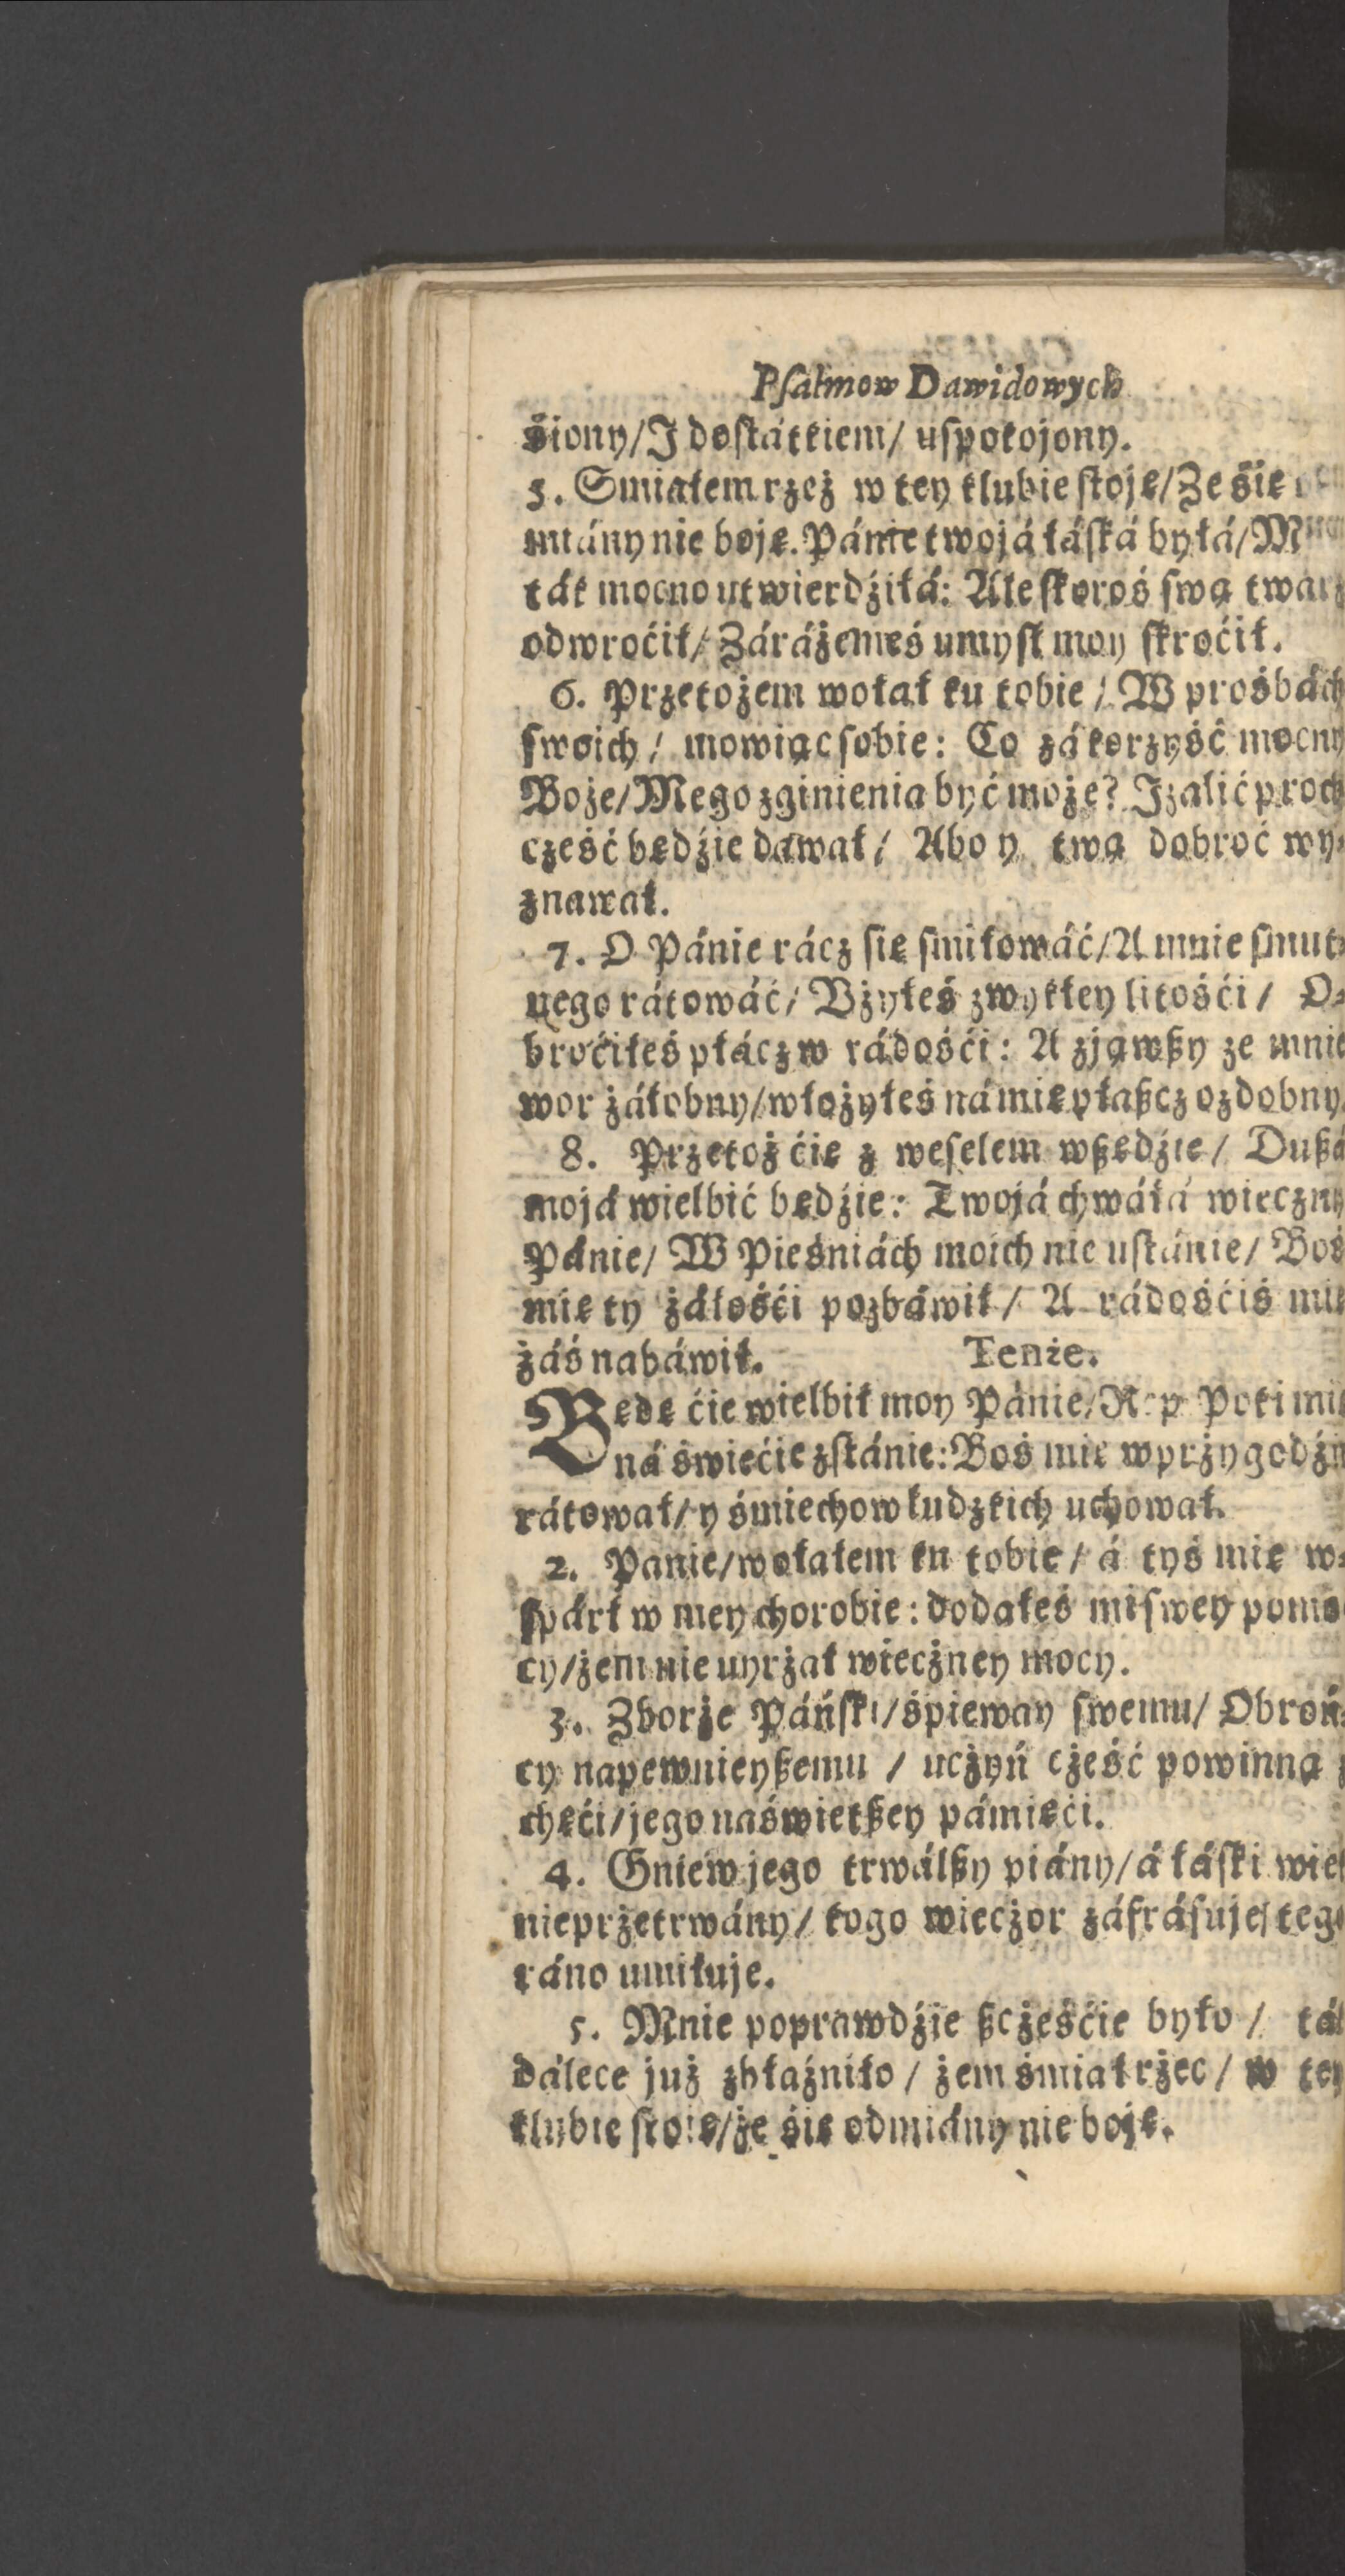 Psalmow Dawidowych
śiony/J dostátkiem/ uspokojony.
5. Smiałem rzeż w tey klubie stoję/Ze śię
miány nie boję. Pánie twojá łáská byłá/
ták mocno utwierdźiłá: Ale skoroś swą twarz
odwroćił/ Zárážemeś umysł moy skroćił.
6. Przetożem wołał ku tobie / W prośbách
swoich / mowiąc sobie: Co zá korzyść mocny
Boże/Mego zginienia być może? Jzalić proch
cześć będźie dawał/ Abo y twą dobroć wy-
znawał.
7. O Pánie rácz się smiłowáć/A mnie smut-
nego rátowáć/ Vżyłeś zwykłey litośći / O-
broćiłeś płácz w rádośći: A zjąwszy ze mnie
wor żáłobny/włożyłeś ná mię płaszcz ozdobny.
8. Przetoż ćię z weselem wszędźie / Duszá
mojá wielbić będźie: Twojá chwáłá wieczny
Pánie/ W Pieśniách moich nie ustánie/ Boś
mię ty żáłośći pozbáwił / A rádośćiś mię
záś nabáwił. Tenże.
Będę ćie wielbił moy Pánie/Rep Poki mi
ná świećie zstánie: Boś mie w przygodźie
rátował/ y śmiechow ludzkich uchował.
2. Panie/wołałem ku tobie / á tyś mię w-
spárł w mey chorobie: dodałeś mi swey pomo
cy/żem nie uyrżał wieczney mocy.
3. Zborże Páński/śpieway swemu/ Obroń-
cy napewnieyszemu / uczyń cżeść powinną z
chęći/jego naświetszey pámięći.
4. Gniew jego trwálszy piány/á łáski wiek
nieprżetrwány/ kogo wieczor záfrásuje/tego
ráno umiłuje.
5. Mnie poprawdźie szcżęśćie było / ták
dálece już zbłaźniło / żem śmiał rżec / w tey
klubie stoję/że śię odmiány nie boję.